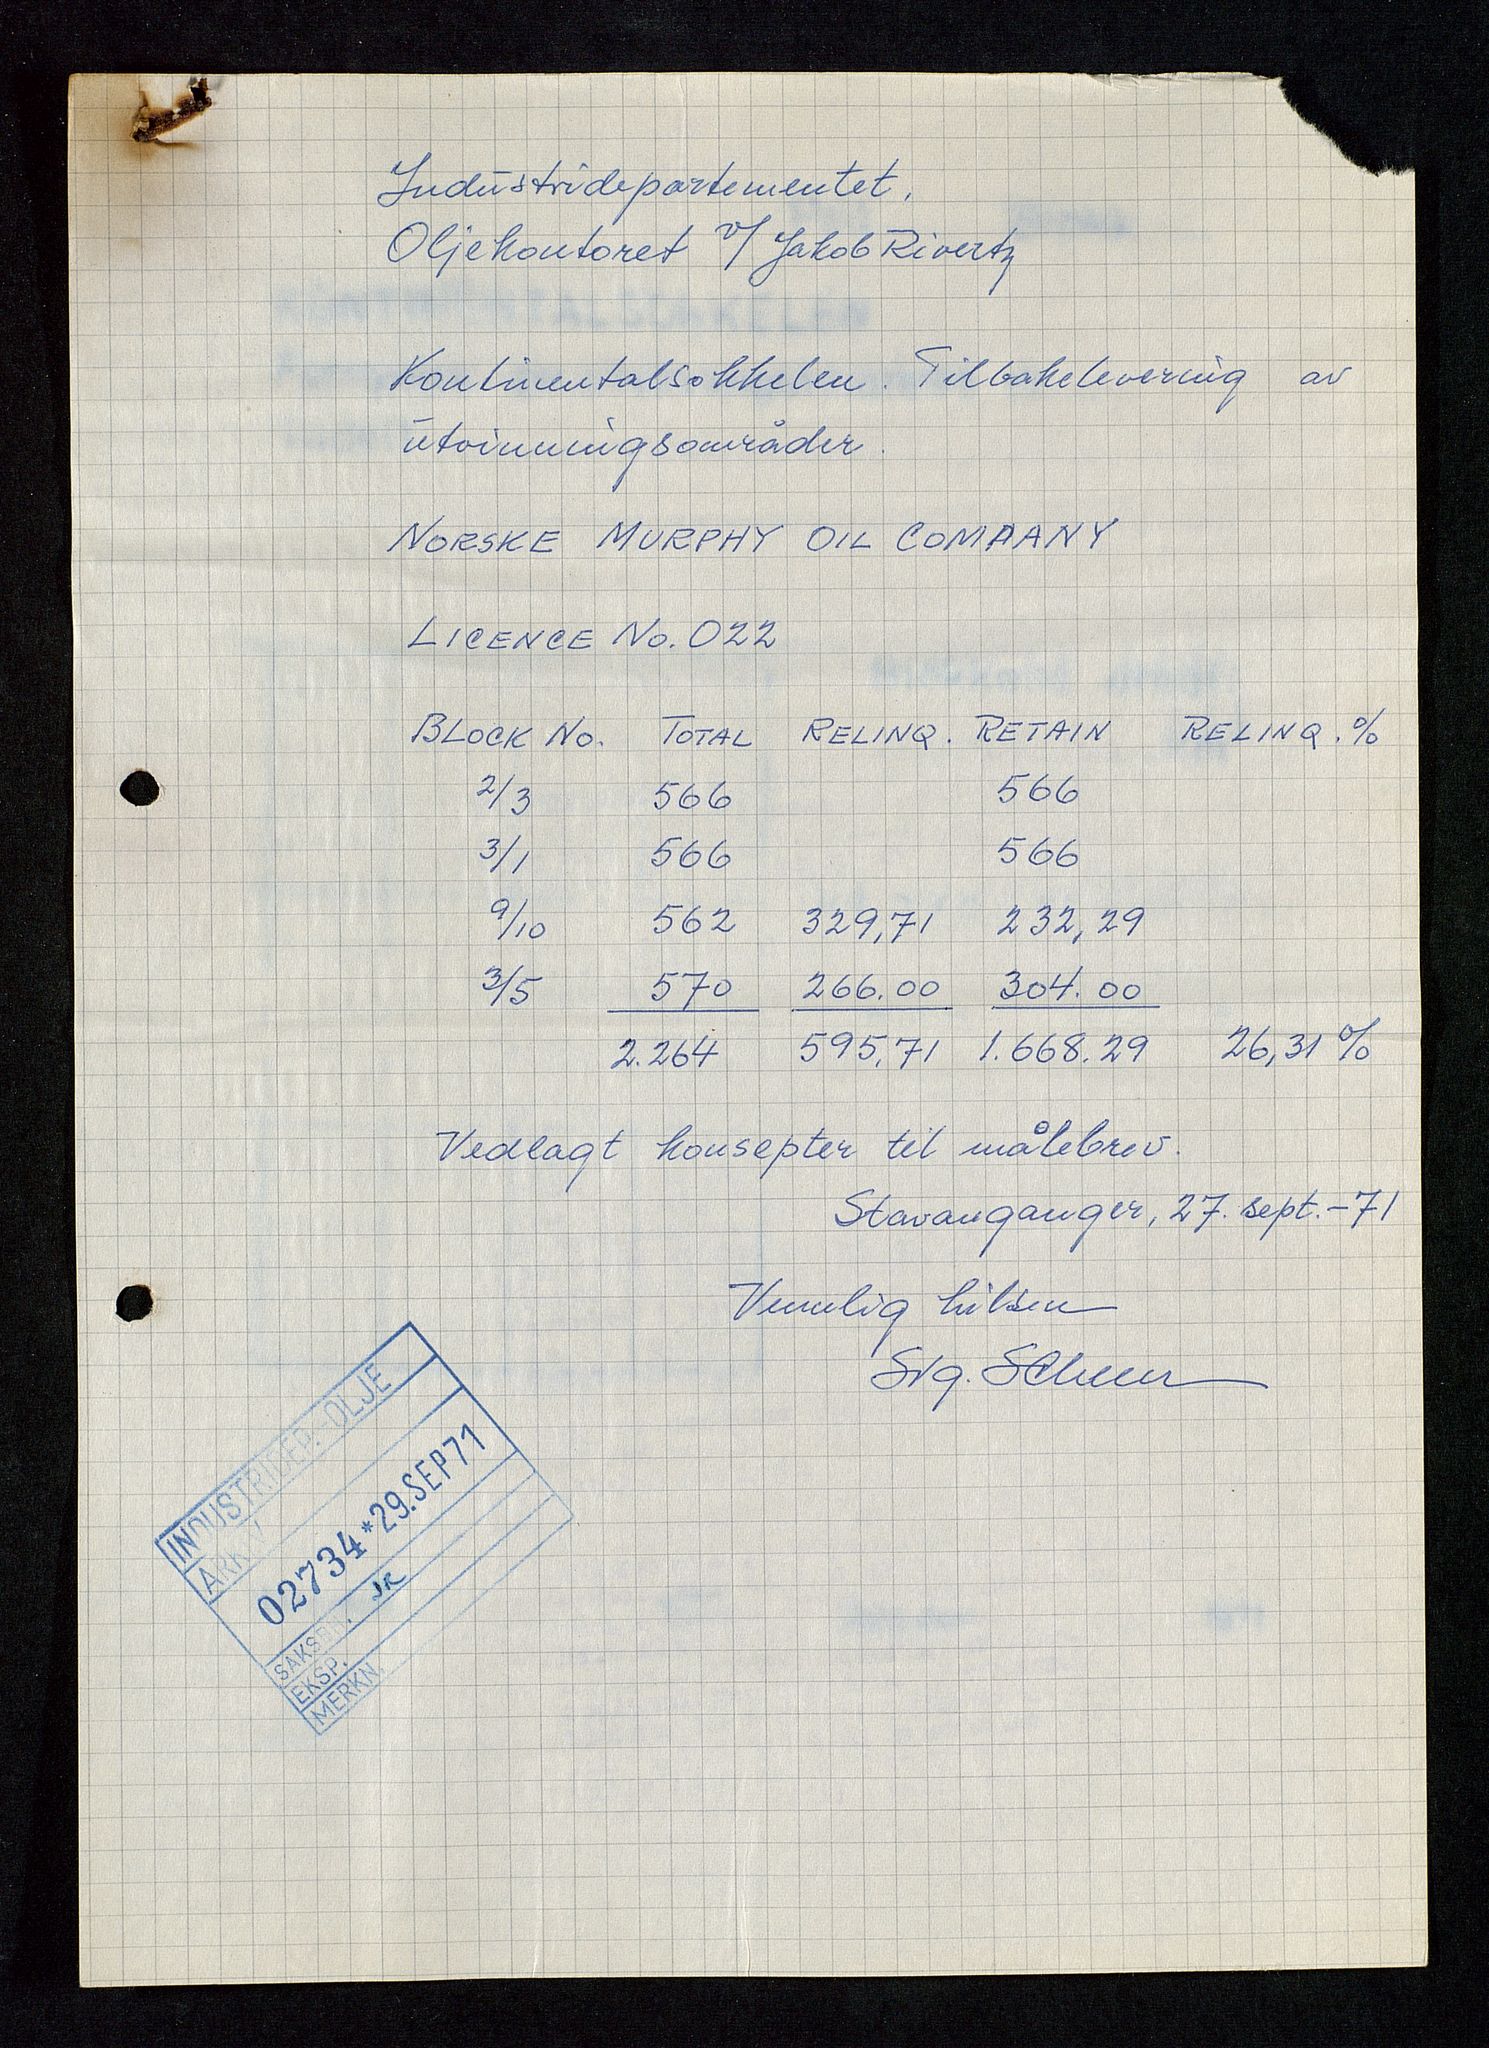 Industridepartementet,
Oljekontoret v/ Jakob Rivertz
Kontinentalsokkelen. Tilbakelevering av
utvinningsområder.
NORSKE MURPHY OIL COMPANY
LICENCE No. 022
BLOCK No. TOTAL RELINQ. RETAIN RELINQ. %
2/3 566 566
3/1 566 566
9/10 562 329,71 232,29
3/5 570 266.00 304.00
2.264 595,71 1.668.29 26,31 %
Vedlagt konsepter til målebrev.
Stavanganger, 27. sept. -71
Vennlig hilsen
INDUSTRIDEP.-OLJE
ARKIV
02734*29.SEP71
SAKSBH. JR
EKSP.
MERKN.